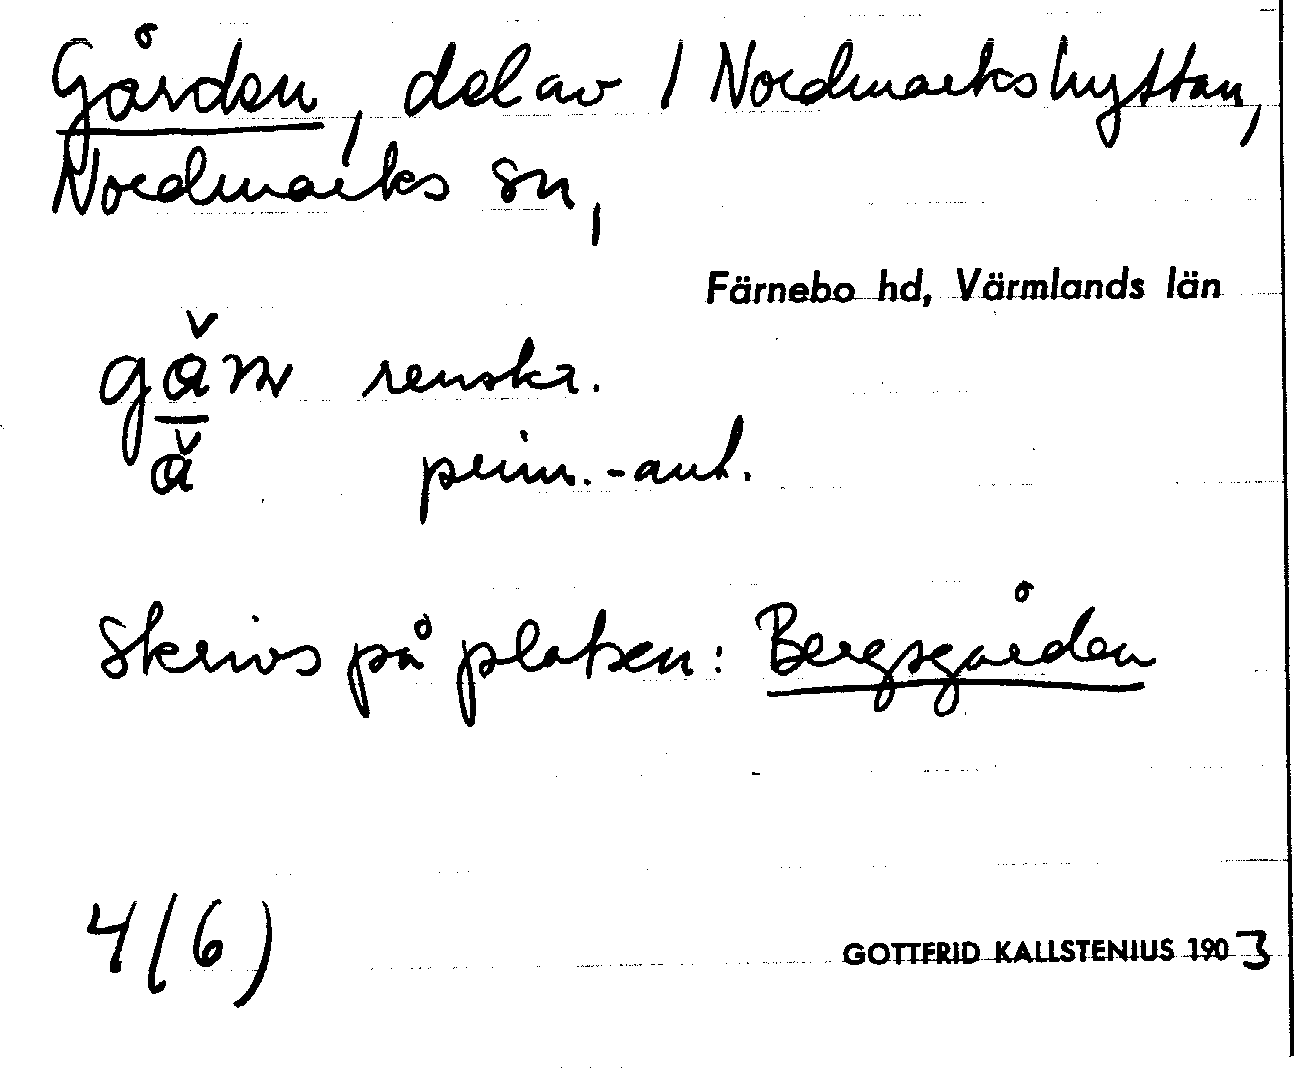 Gården, del av 1 Nordmarkshyttan,
Nordmarks sn,
Färnebo hd, Värmlands län
renskr.
ǎ prim.-ant.
Skrivs på platsen: Bergsgården
4(6)
GOTTFRID KALLSTENIUS 1903